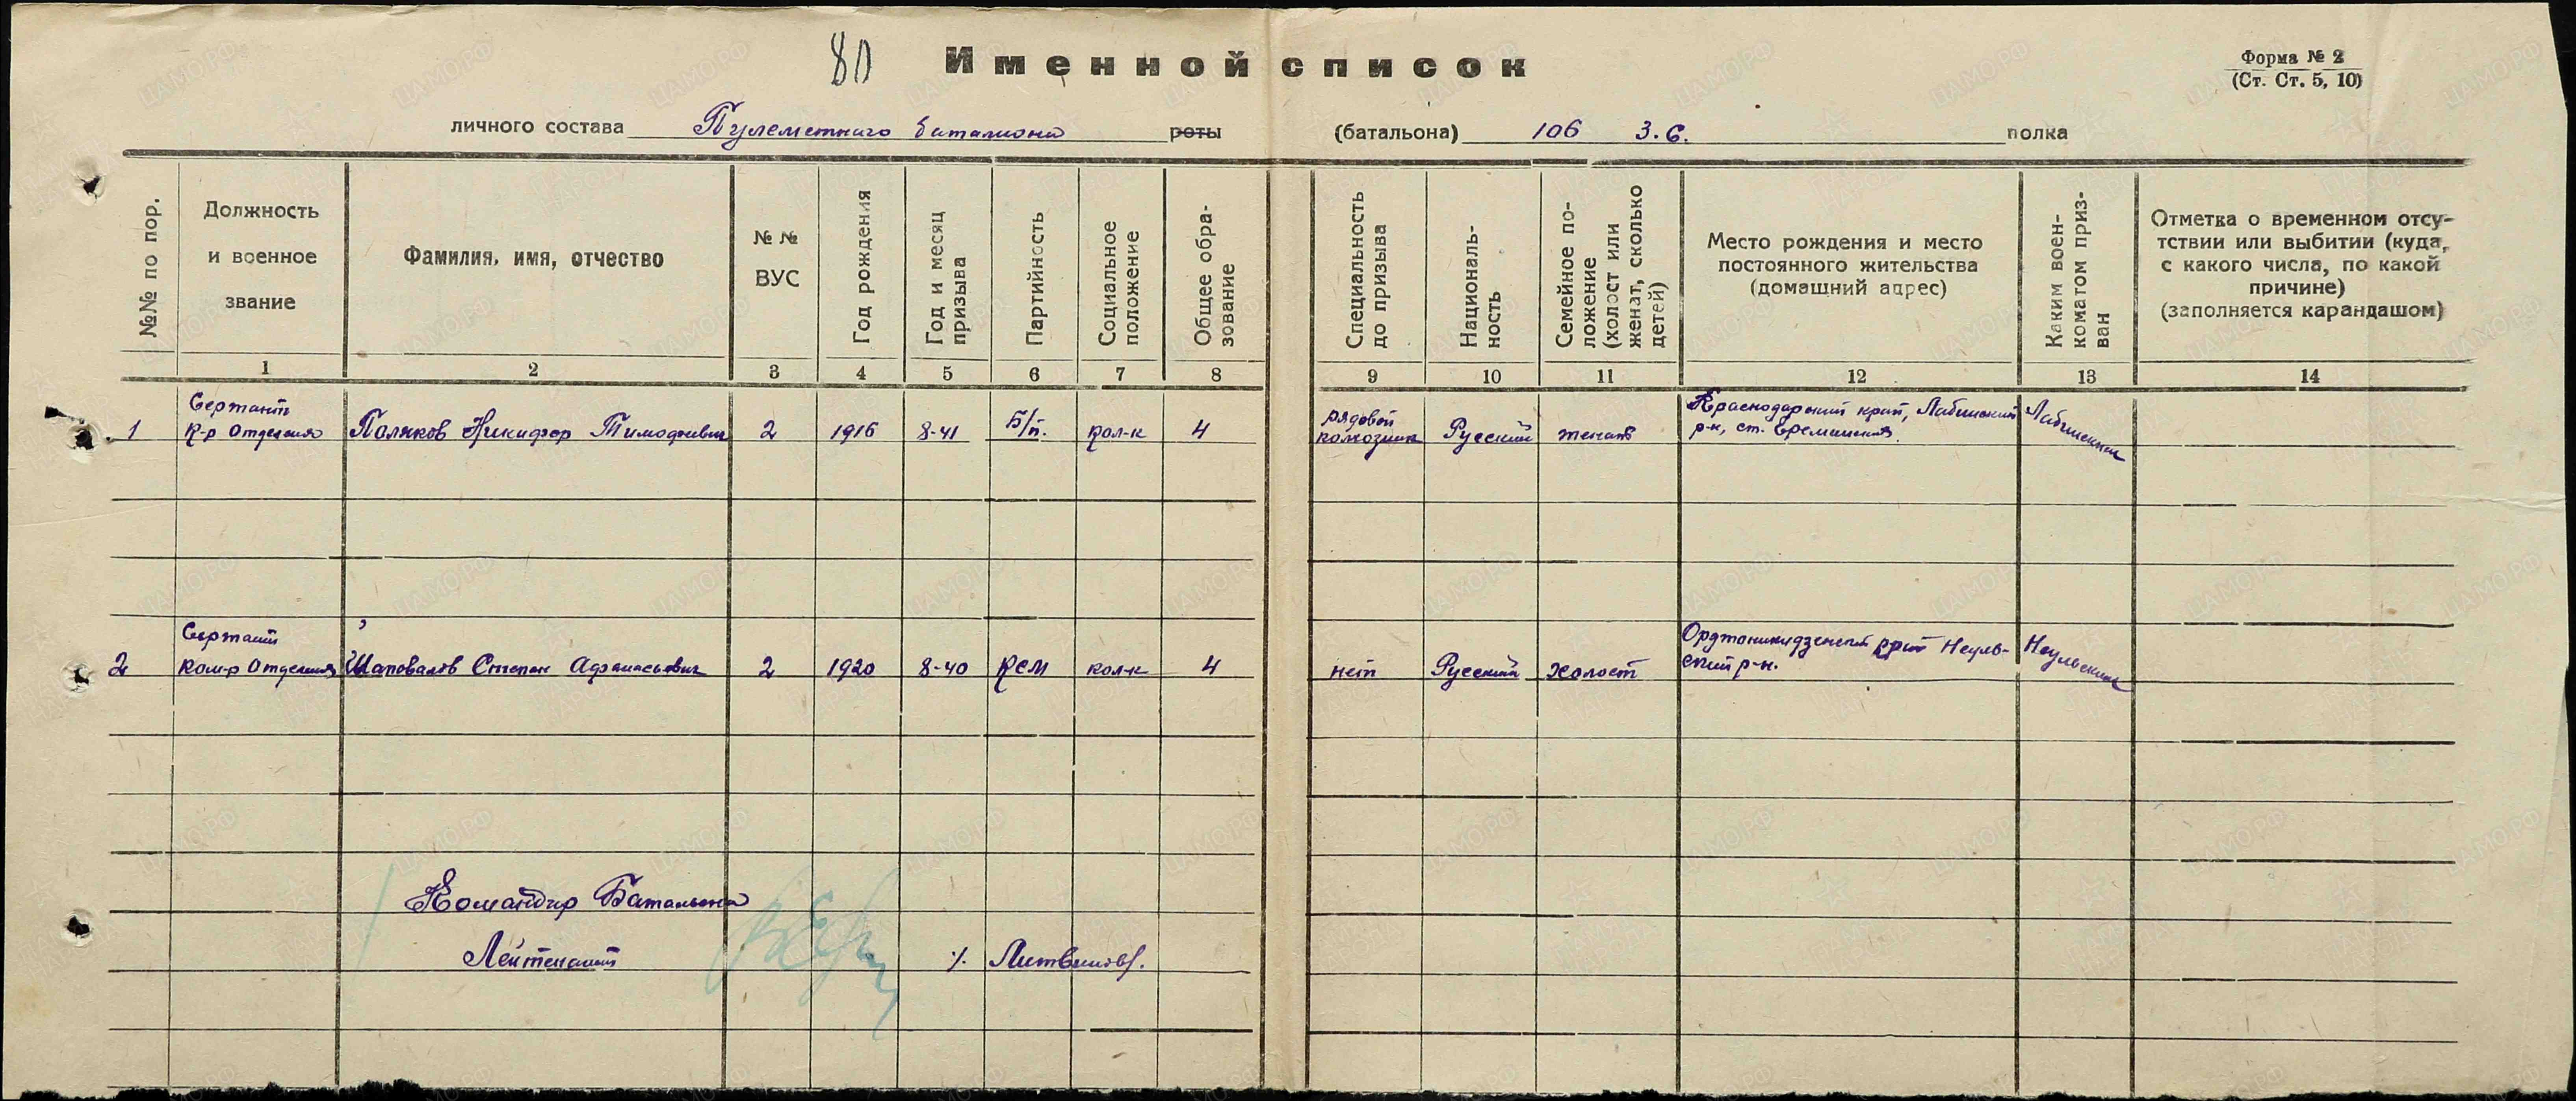 80
Именной список
Форма № 2
(Ст. Ст. 5, 10)
личного состава Пулеметного баталиона роты (батальона) 106 З.б. полка
№№ по пор.
Должность
и военное
звание
Фамилия, имя, отчество
№ №
ВУС
Год рождения
Год и месяц
призыва
Партийность
Социальное
положение
Общее обра-
зование
Специальность
до призыва
Националь-
ность
Семейное по-
ложение
(холост или
женат, сколько
детей)
Место рождения и место
постоянного жительства
(домашний адрес)
Каким воен-
коматом приз-
ван
Отметка о временном отсу-
тствии или выбитии (куда,
с какого числа, по какой
причине)
(заполняется карандашом)
1 2 3 4 5 6 7 8 9 10 11 12 13 14
Сержант
1 к-р Отделения Поляков Никифор Тимофеевич 2 1916 8-41 Б/п. кол-к 4
рядовой
колхозник Русский женат
Краснодарский край, Лабинский
р-н, ст.
Лабинским
Сержант
2 ком-р Отделения Шаповалов Степан Афанасьевич 2 1920 8-40 КСМ кол-к 4
нет Русский холост
Орджоникидзенский край Неуль-
ский р-н.
Неульским
Командир Батальона
Лейтенант /. Литвинов/.
ЦАМО.РФ